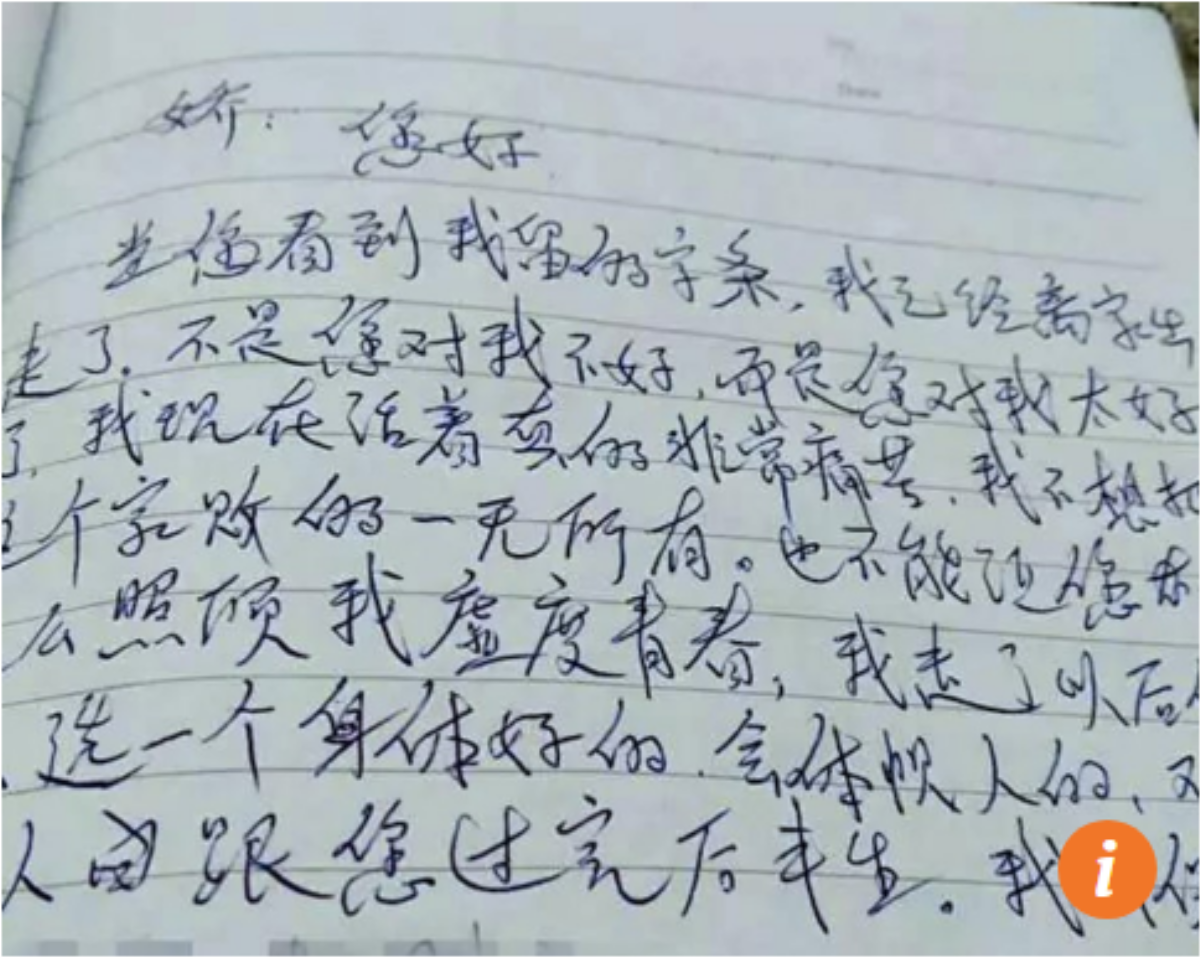 娇：您好
当您看到我留的字条，我已经离家出
走了，不是您对我不好，而是您对我太好
了，我现在活着真的非常痛苦，我不想把
这个家败的一无所有。也不能让您永
么照顾我虚度青春，我走了以后
选一个身体好的，会体贴人的，
人 跟您过完后半生。我
i